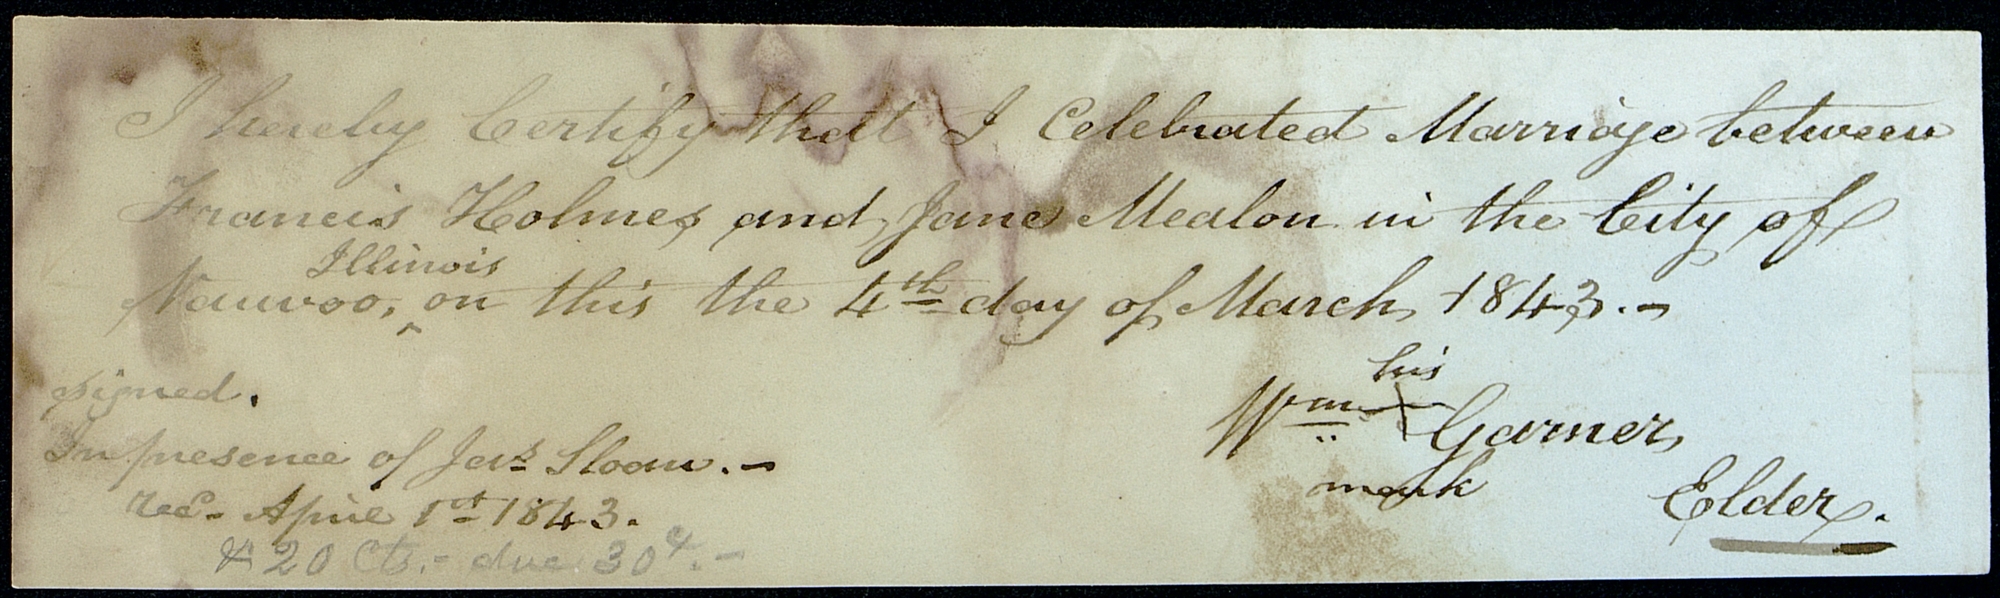 I hereby Certify that I Celebrated Marriage between
Francis Holmes and Jane Mealon in the City of
Illinois
Nauvoo, ^ on this the 4th day of March 1843.-
signed.
his
Wm X Garner,
mark
Elder.
In presence of Jas. Sloan.-
rec- April 1st 1843.
& 20 Cts.- due 30c.-